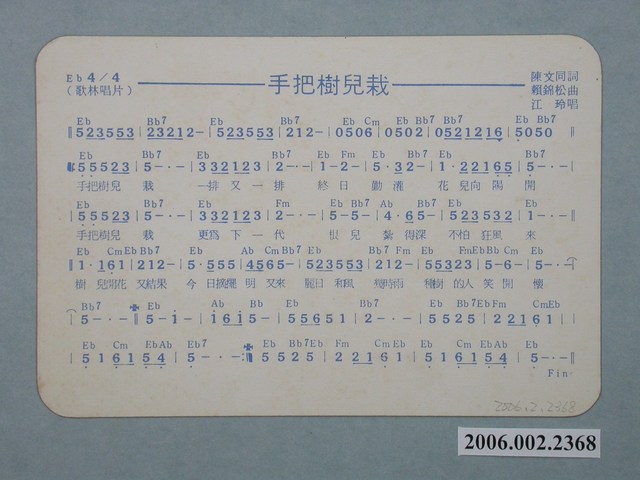 Eb 4/4
手把樹兒栽
(歌林唱片)
陳文同詞
賴錦松曲
江玲唱
Eb Bb7 Eb Bb7 Eb Cm Eb Bb7 Bb7 Eb Bb7
‖523553|23212-|523553|212-|0506|0502|0521216|5050
Eb Bb7 Eb Bb7 Eb Fm Eb Bb7 Eb Bb7
55523|5-·-|332123|2-·-|1-2-|5·32-|1·22165|5-·-|
手把樹兒 栽 一排 又 一 排 終 日 勤 灌 花 兒向 陽 開
Eb Bb7 Eb Fm Eb Bb7 Ab Bb7 Eb
|55523|5-·-|332123|2-·-|5-5-|4·65-|523532|1-·-‖
手把樹兒 栽 更爲 下 一 代 根 兒 紮 得深 不怕 狂風 來
Eb Cm Eb Bb7 Eb Ab Cm Bb7 Eb Bb7 Fm Eb Fm Eb Bb Cm Eb
‖1·161|212-|5·555|4565-|523553|212-|55323|5-6-|5-·-
樹 兒開花 又結果 今 日 明 又來 麗日 和風 時雨 種樹 的人 笑 開 懷
Bb7 Eb Ab Bb Eb Bb7 Eb Bb7 Eb Fm Cm Eb
|5-·-‖5-i-|i6i5-|55651|2-·-|5525|22161||
Eb Cm Eb Ab Eb7 Eb Bb7 Eb Fm Cm Eb Eb Cm Eb Ab Eb
|516154|5-·-:‖5525|22161|516154|5-·-‖
Fin·
2006.2.2368
2006.002.2368